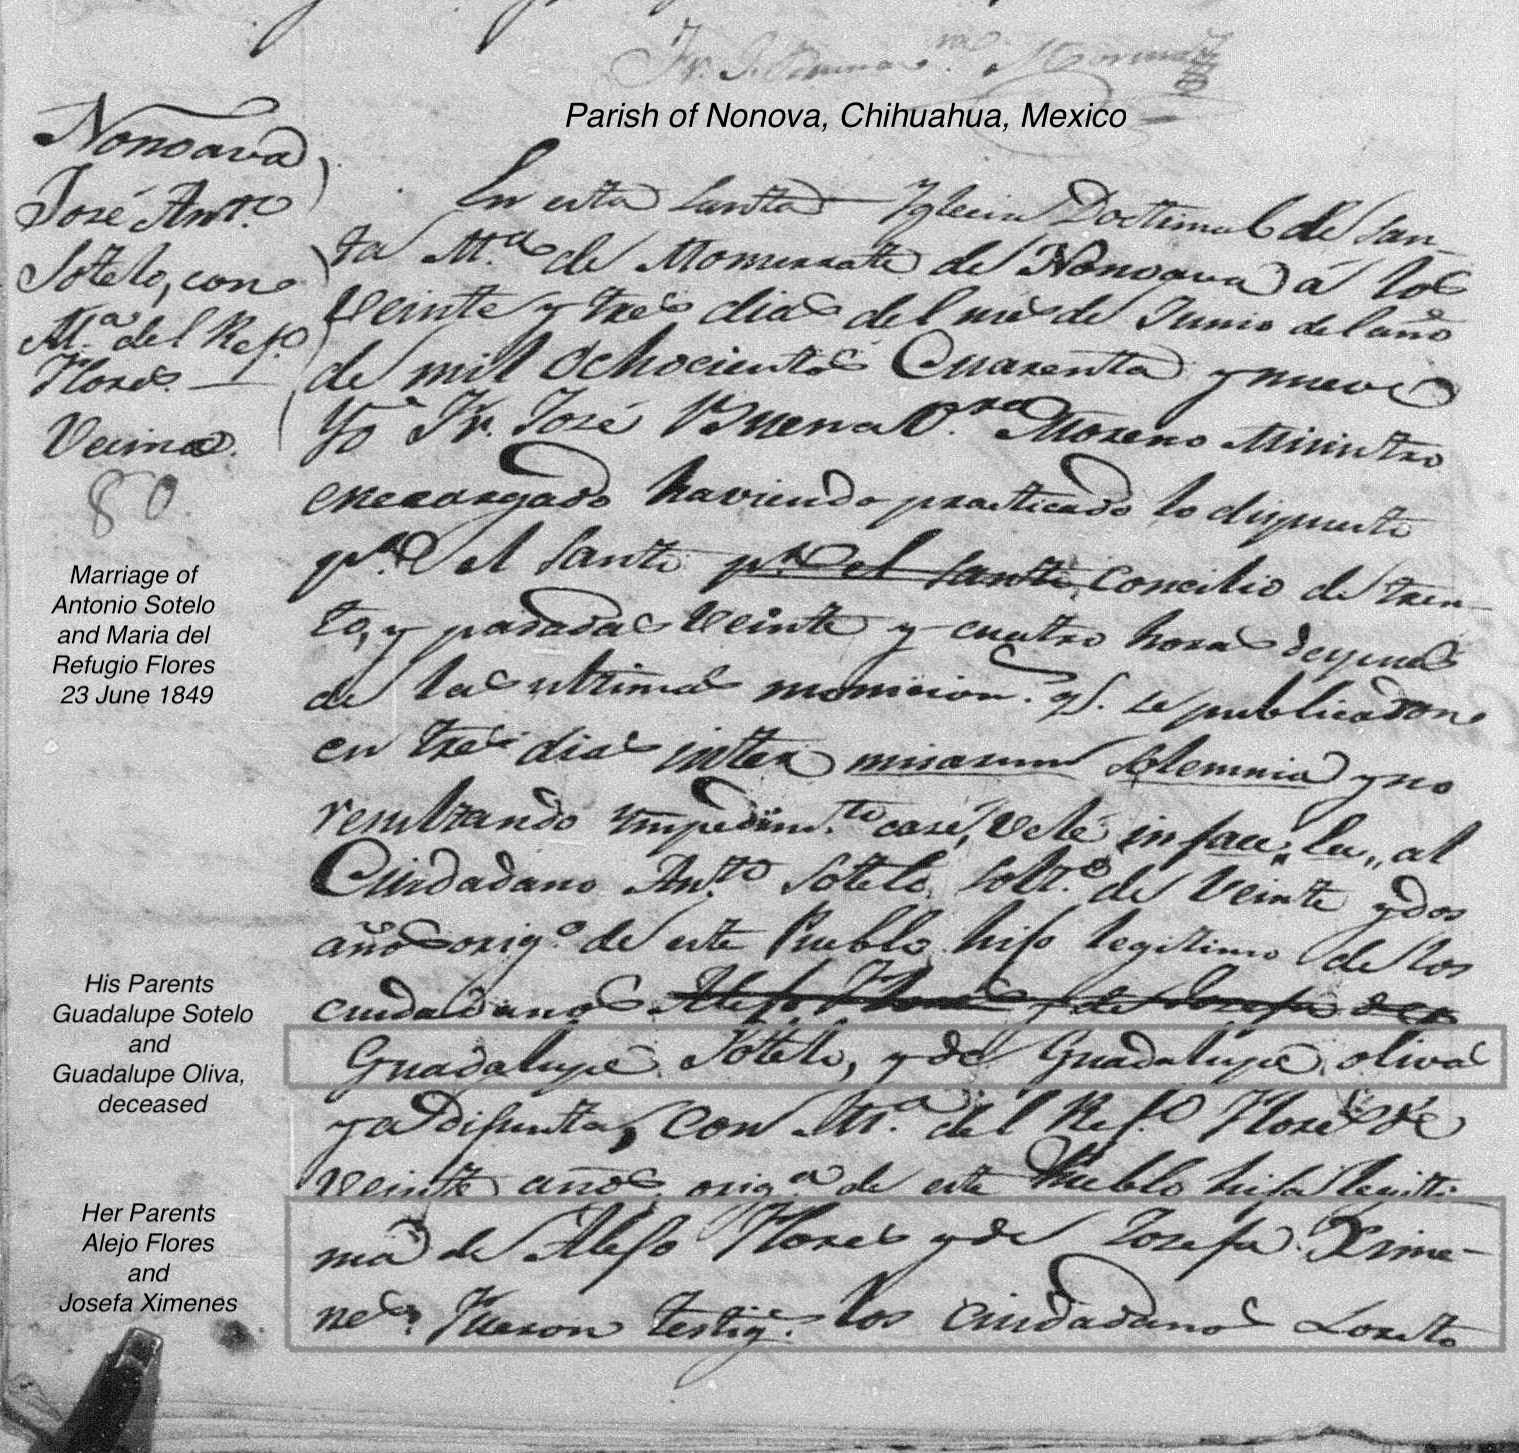 Fr. J. Buenav.ra Moreno
Parish of Nonova, Chihuahua, Mexico
Nonoava
José Ant.o
Sotelo, con
M.a del Ref.o
Flores.
Vecinos.
80.
Marriage of
Antonio Sotelo
and Maria del
Refugio Flores
23 June 1849
His Parents
Guadalupe Sotelo
and
Guadalupe Oliva,
deceased
Her Parents
Alejo Flores
and
Josefa Ximenes
En esta Santa Iglecia Doctrinal de San-
ta M.a de Monserrate de Nonoava á los
veinte y tres dias del mes de Junio del año
de mil ochocientos Cuarenta y nueve
Yo Fr. José BuenaV.ra Moreno Ministro
encargado haviendo practicado lo dispuesto
p.r el Santo p.r el Santo Concilio de Tren-
to, y pasadas veinte y cuatro horas despues
de la ultima monicion. q.e se publicaron
en tres dias inter misarum solemnia y no
resultando Ympedim.to casé, velé in facie, al
Ciudadano Ant.o Sotelo, solt.o de veinte y dos
años orig.o de este Pueblo hijo legitimo de los
ciudadanos Alejo Flores y de Josefa
Guadalupe Sottelo, y de Guadalupe oliva
ya Difunta, con M.a del Ref.o Flores de
veinte años orig.a de este Pueblo hija legiti
ma de Alejo Flores y de Josefa Xime-
nes. Fueron testig.s los ciudadanos Loreto